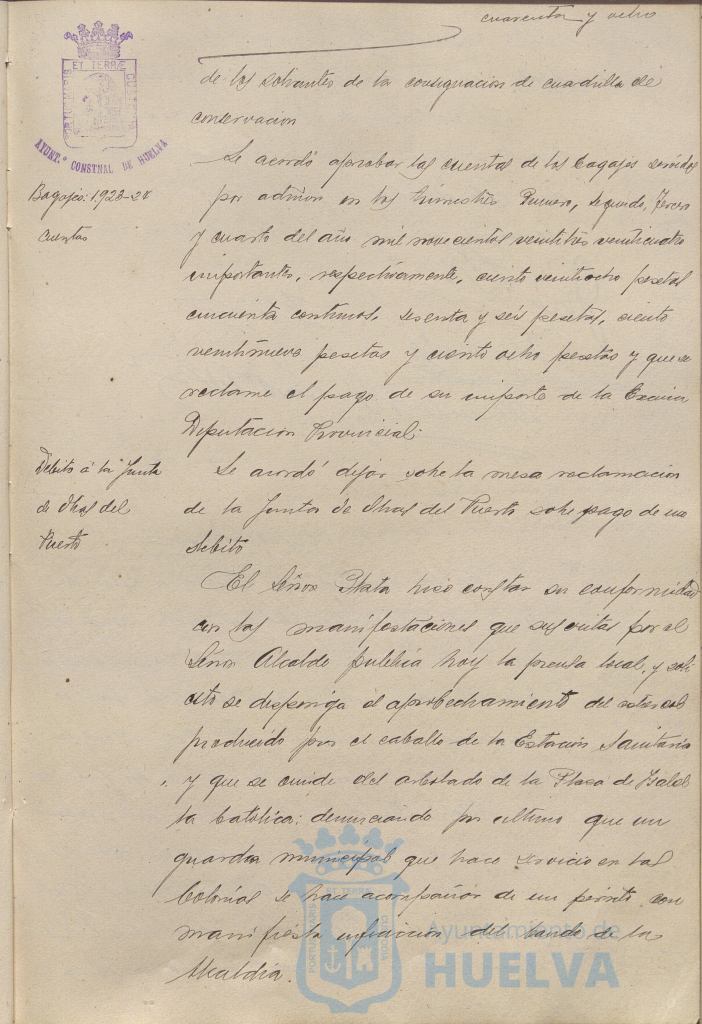 cuarenta y ocho
ET TERRÆ
AYUNT.º CONSTNAL DE HUELVA
de los sobrantes de la consignacion de cuadrilla de
conservacion
Bagajes: 1923-24
cuentas
Se acordó aprobar las cuentas de los bagajes servidos
por admon en los trimestres Primero, segundo, tercero
y cuarto del año mil novecientos veintitres veinticuatro
importantes, respectivamente, ciento veintiocho pesetas
cincuenta centimos, sesenta y seis pesetas, ciento
veintinueve pesetas y ciento ocho pesetas y que se
reclame el pago de su importe de la Excma
Diputacion Provincial.
Debito á la Junta
de Obras del
Puerto
Se acordó dejar sobre la mesa reclamacion
de la Junta de Obras del Puerto sobre pago de un
debito
El Señor Plata hizo constar su conformidad
con las manifestaciones que suscritas por el
Señor Alcalde publica hoy la prensa local, y soli
cito se disponga el aprobechamiento del estiercol
producido por el caballo de la Estación Sanitaria
y que se cuide del arbolado de la Plaza de Isabel
la Catolica; denunciando por ultimo que un
guardia municipal que hace servicio en las
Colonias se hace acompañar de un perrito con
manifiesta infraccion del bando de la
Alcaldia.
ET TERRÆ
Ayuntamiento de
HUELVA